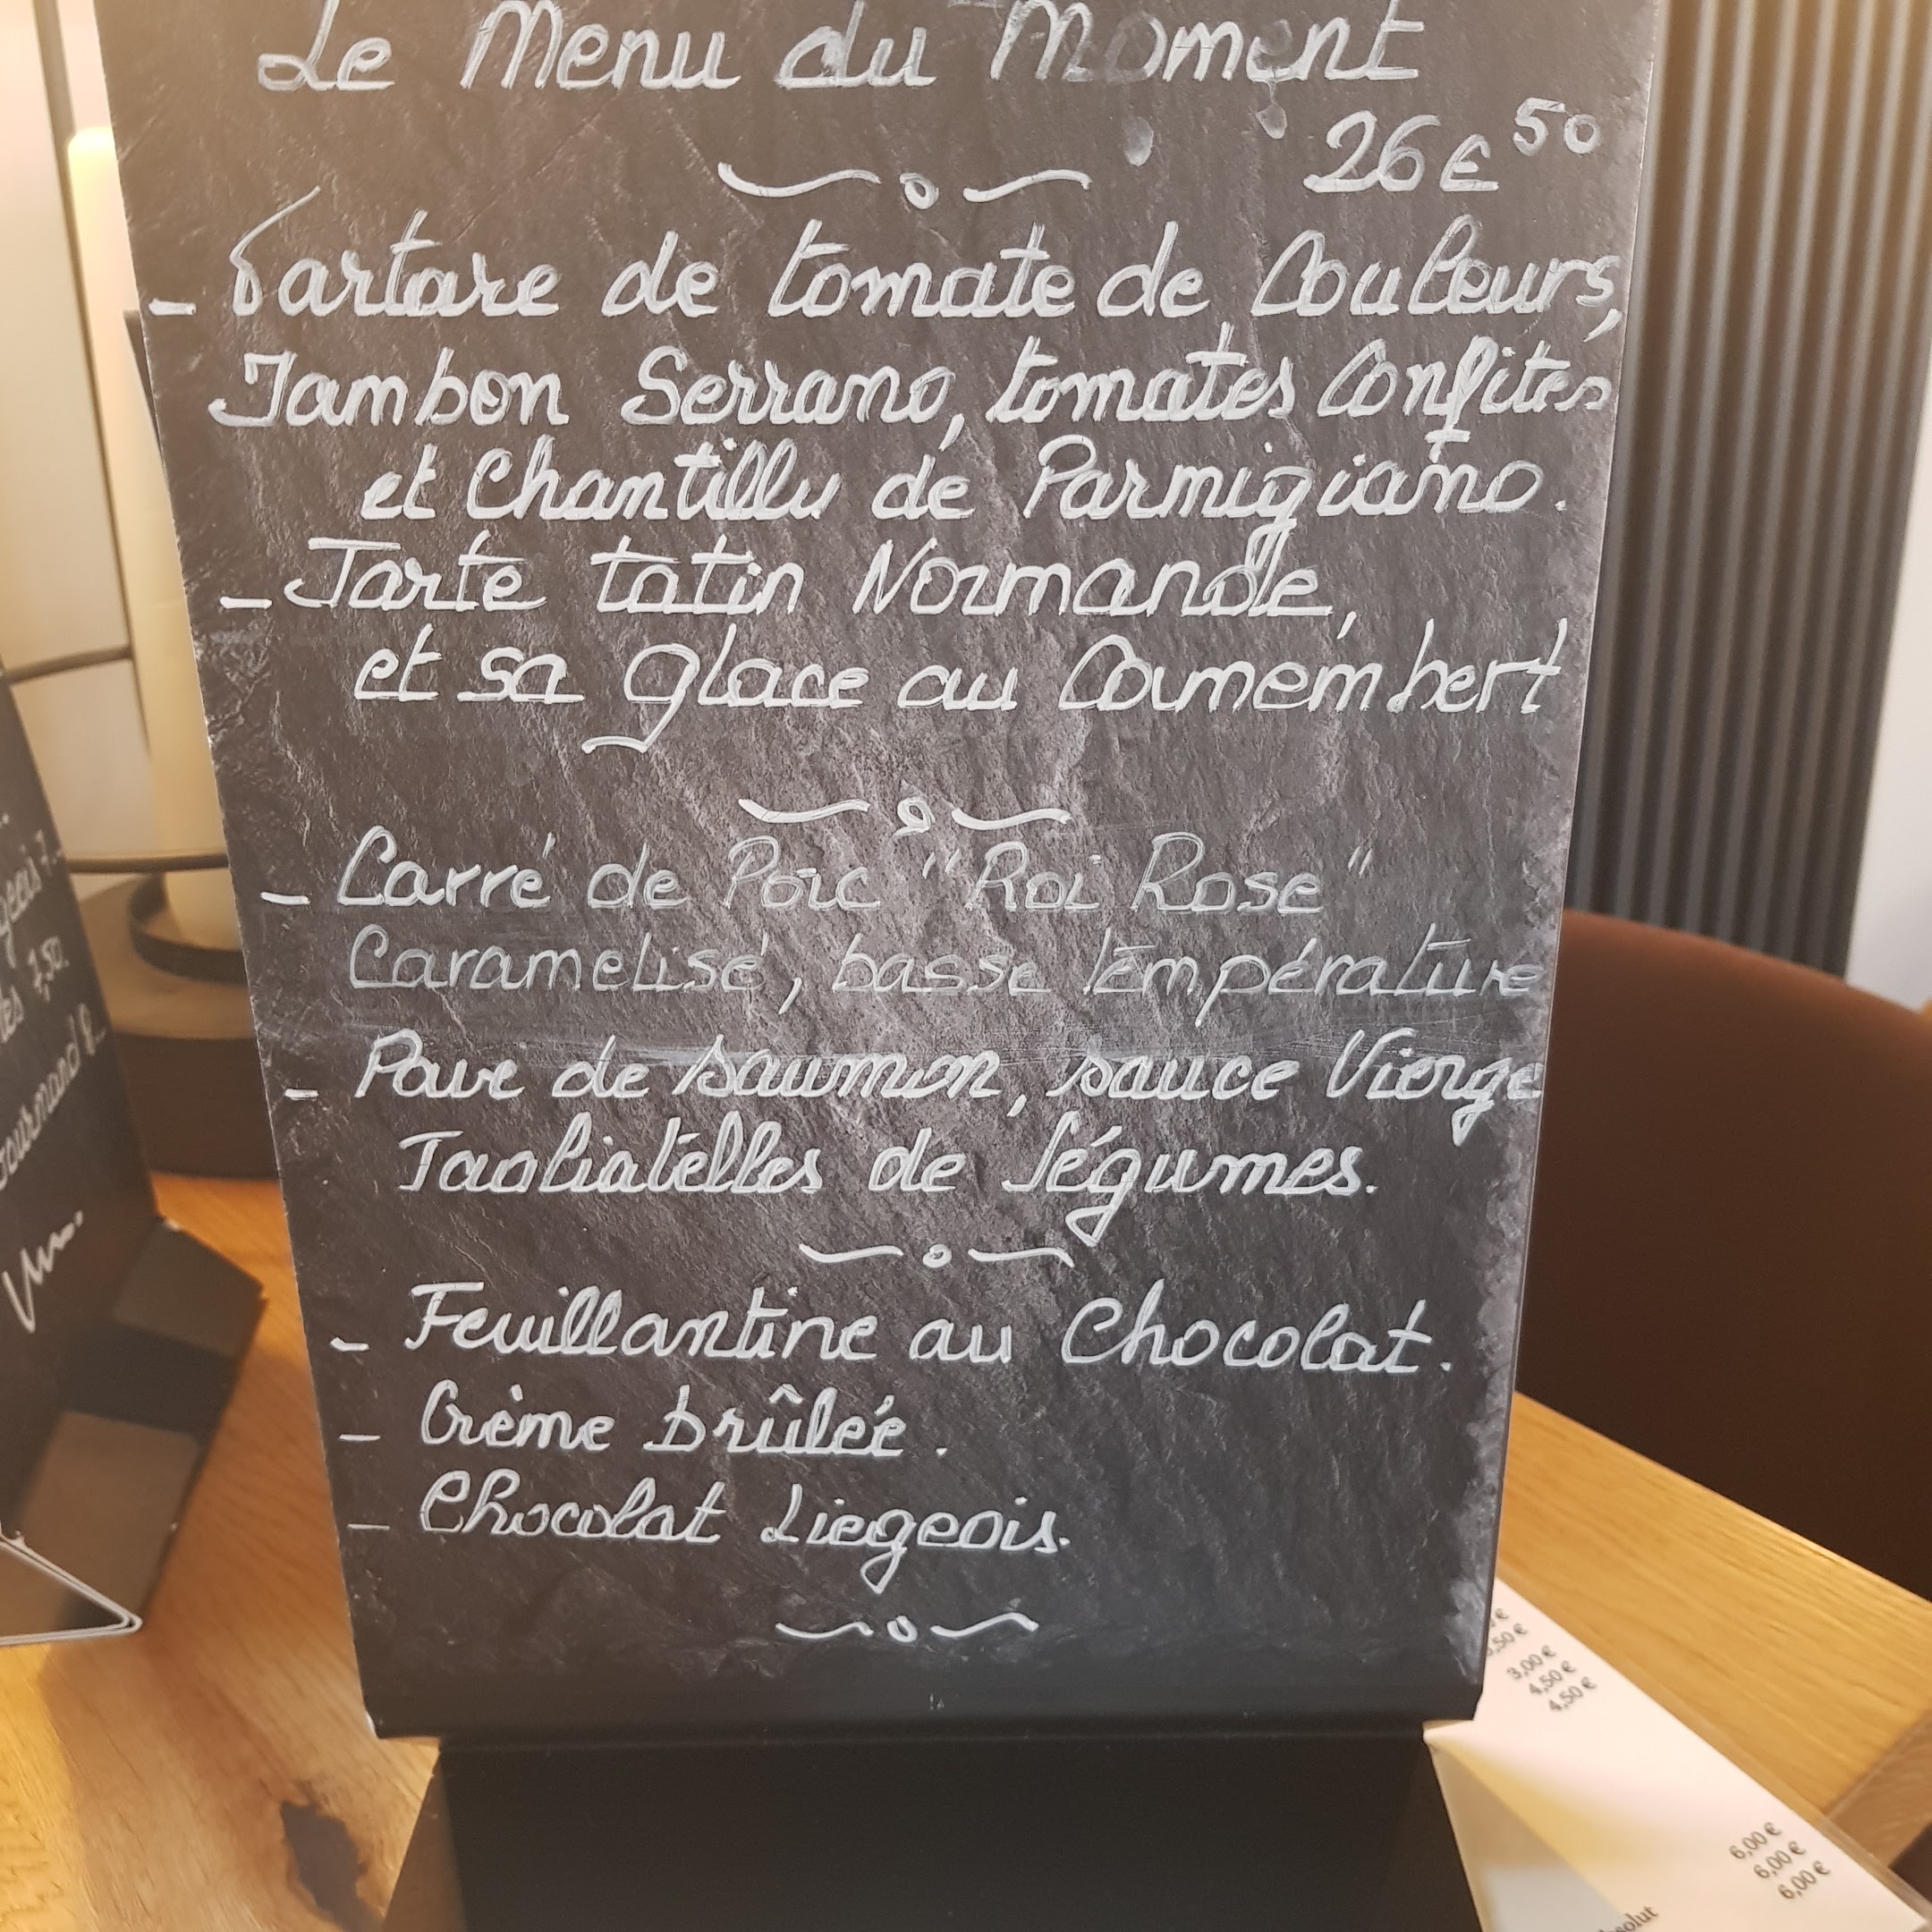 Le Menu du Moment
26€50
- Tartare de tomate de Couleurs,
Jambon Serrano, tomates Confites
et Chantilly de Parmigiano.
- Tarte tatin Normande,
et sa glace au Camembert
- Carré de Porc "Roi Rose"
Caramelisé, basse température
- Pavé de saumon, sauce Vierge
Tagliatelles de légumes.
- Feuillantine au Chocolat.
- Crème brûlée.
- Chocolat Liegeois.
7,50.
3,00 €
4,50 €
4,50 €
6,00 €
6,00 €
6,00 €